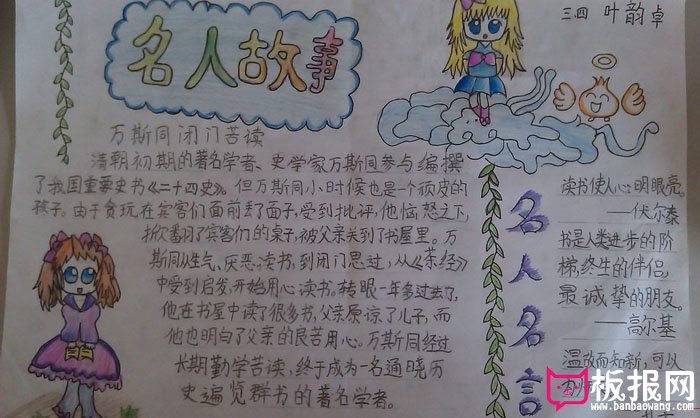 三四 叶韵卓
名人故事
万斯同闭门苦读
清朝初期的著名学者、史学家万斯同参与编撰
了我国重要史书《二十四史》。但万斯同小时候也是一个顽皮的
孩子。由于贪玩在宾客们面前丢了面子,受到批评,他恼怒之下,
掀翻了宾客们的桌子,被父亲关到了书屋里。万
斯同从生气、厌恶读书,到闭门思过,从《茶经》
中受到启发,开始用心读书。转眼一年多过去了,
他在书屋中读了很多书,父亲原谅了儿子,而
他也明白了父亲的良苦用心。万斯同经过
长期勤学苦读,终于成为一名通晓历
史遍览群书的著名学者。
名人名言
读书使人心明眼亮。
——伏尔泰
书是人类进步的阶
梯,终生的伴侣,
最诚挚的朋友。
——高尔基
温故而知新,可以
板报网
www.banbaowang.com